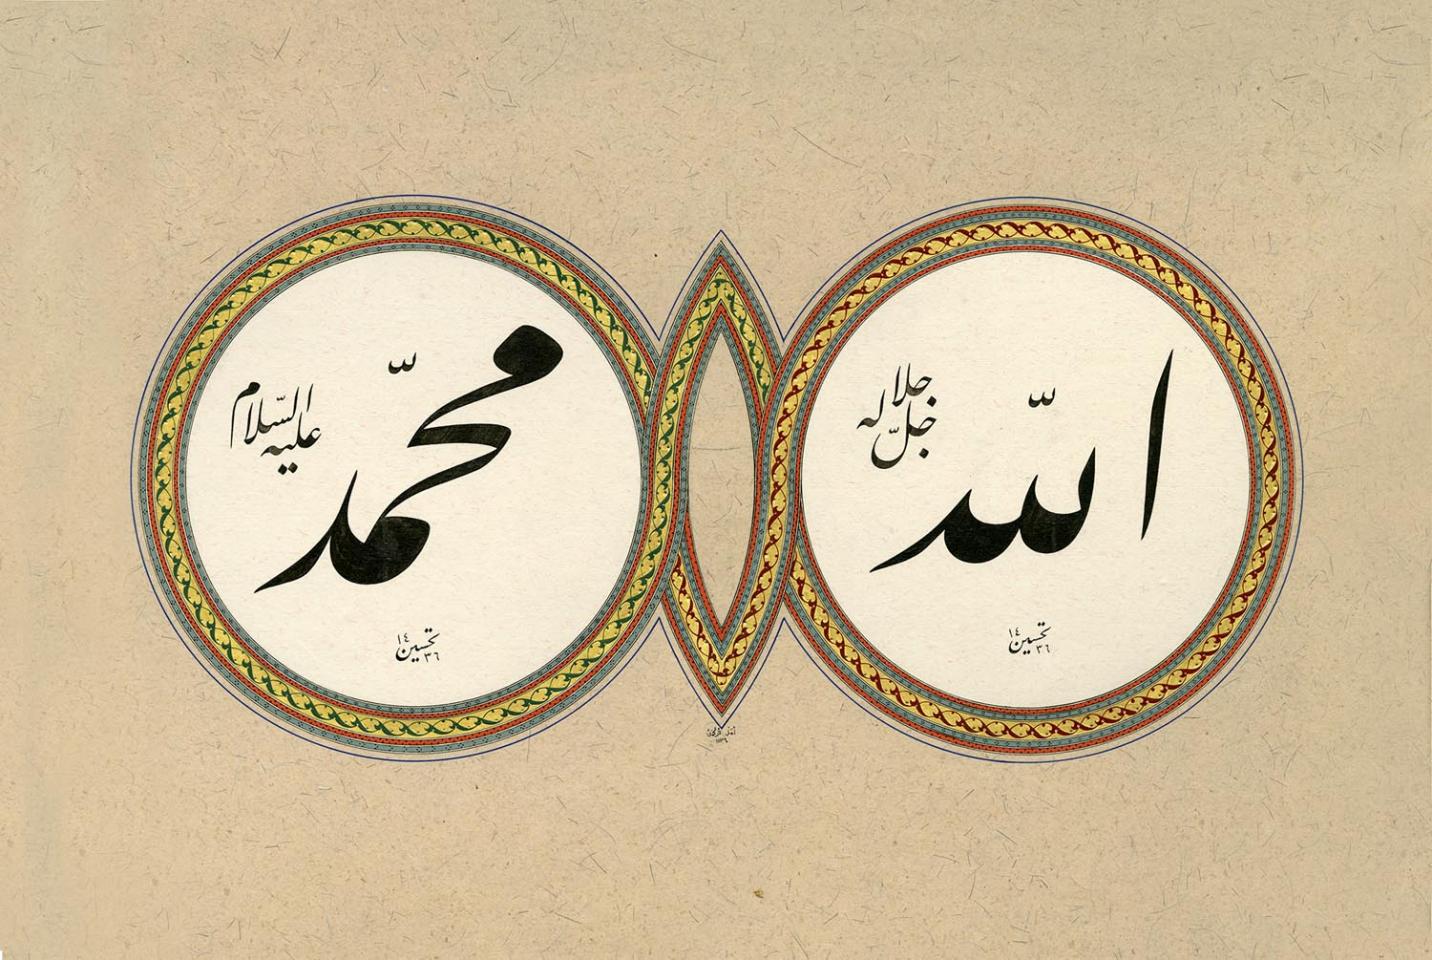 اللّٰه
جل جلاله
تحسين
١٤٣٦
محمّد
عليه السّلام
تحسين
١٤٣٦